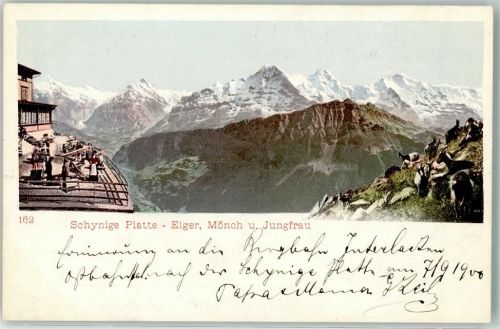 162
Schynige Platte - Eiger, Mönch u. Jungfrau
Erinnerung an die Bergbahn Interlaken
Ostbahnhof nach der Schynige Platte am 7/9 1900
Papa & Mama Keil